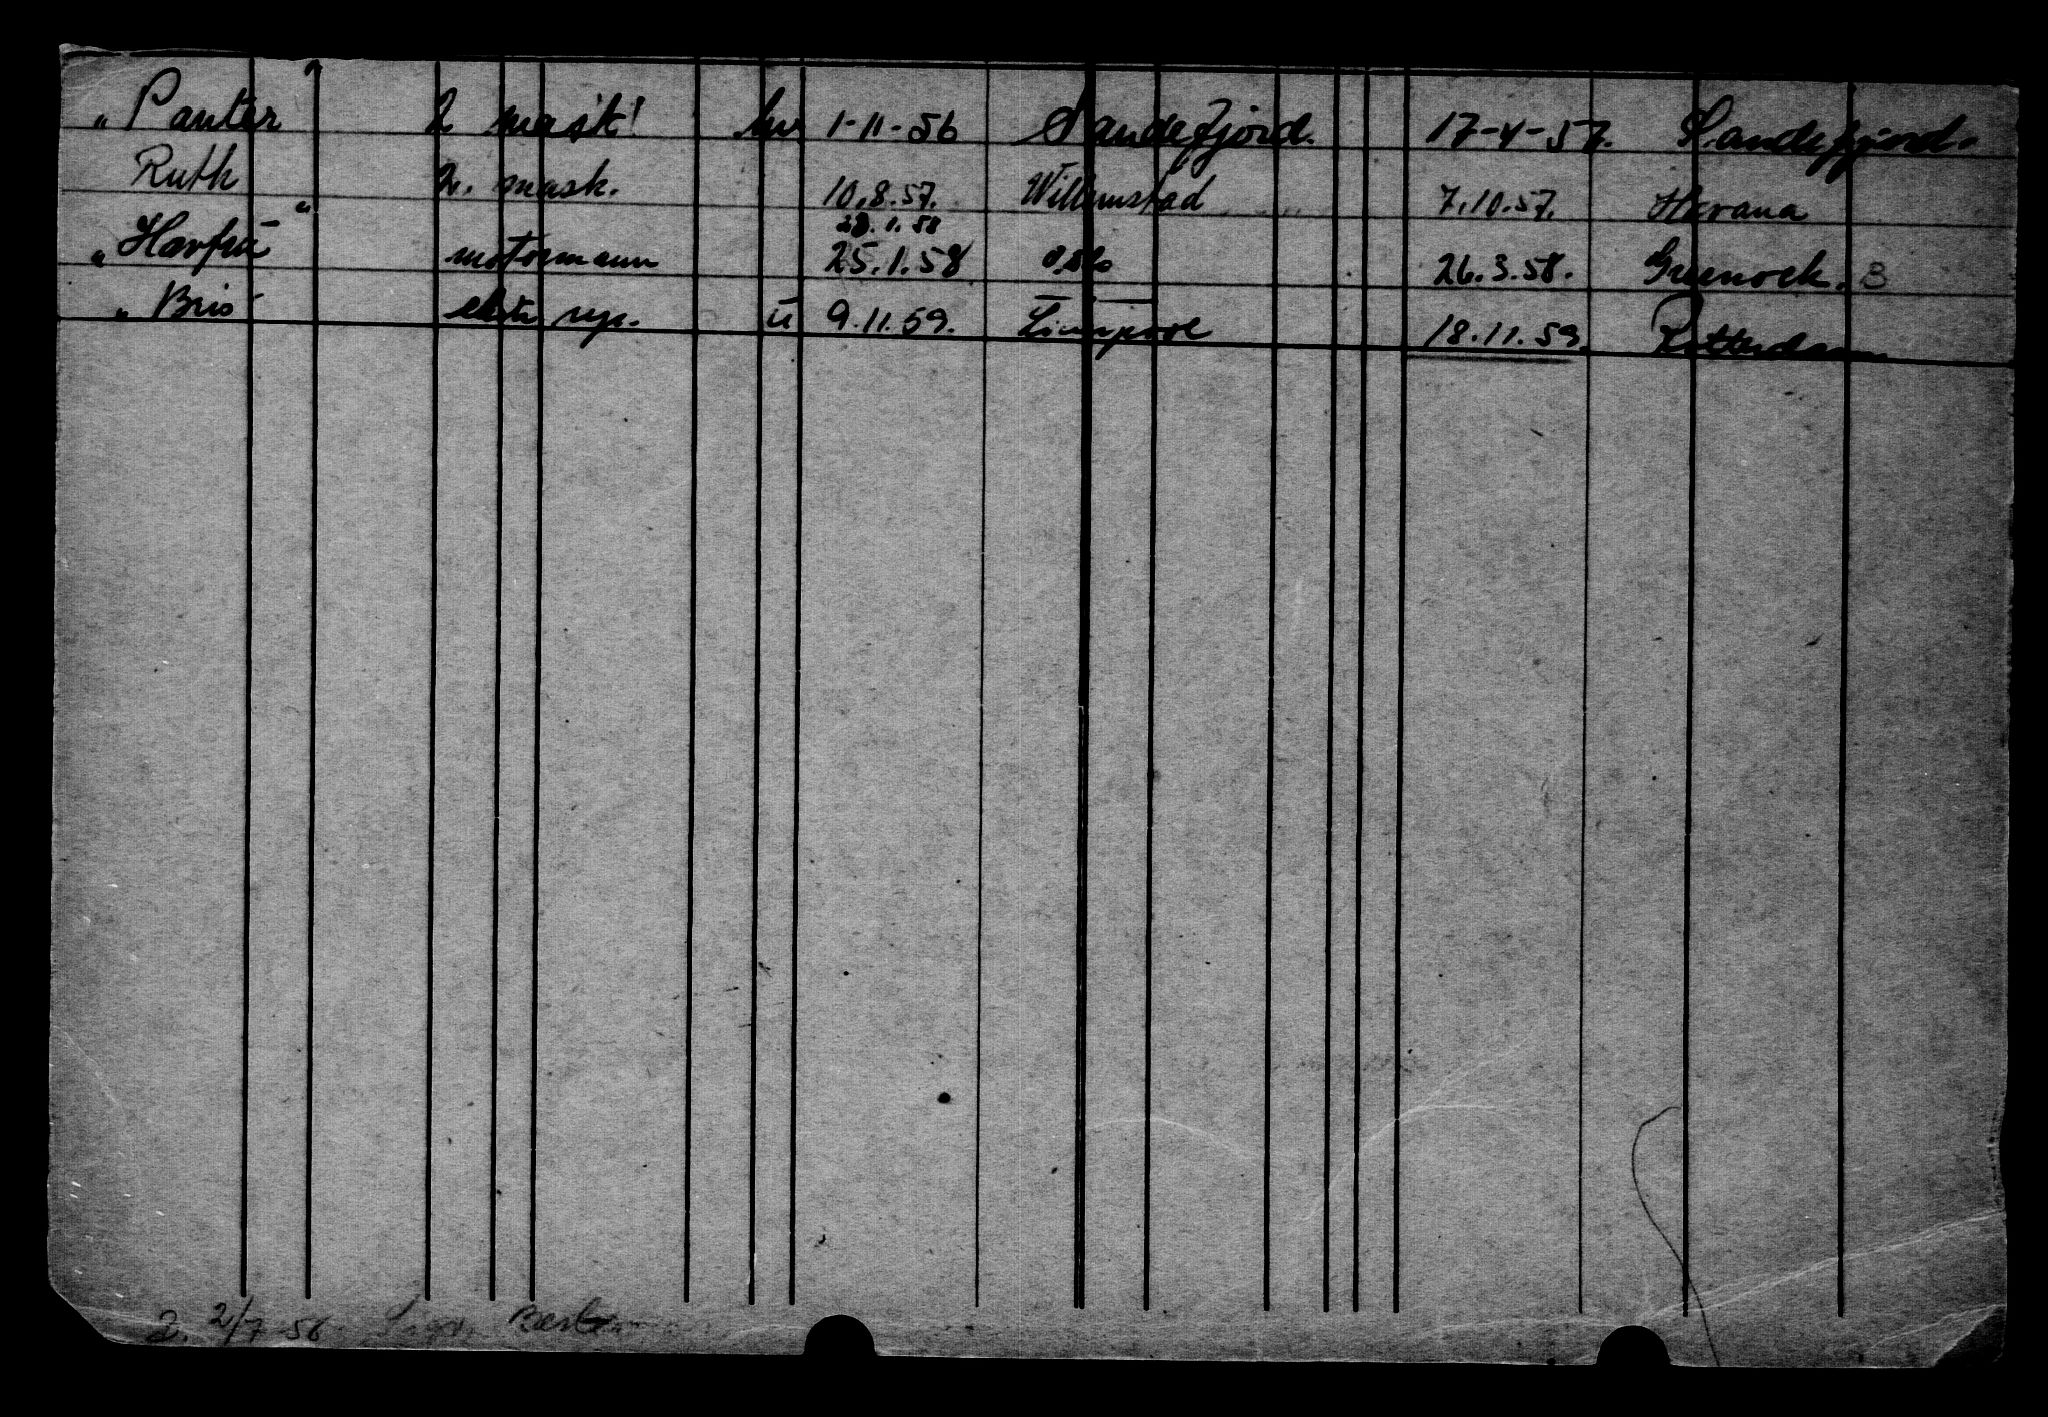 „ Panter " 2 mask! 1-11-56 Sandefjord. 17-4-57. Sandefjord.
Ruth 2. mask. 10.8.57. Willemstad 7.10.57. Havana
28.1.58
„ Havfru " motormann 25.1.58 Oslo 26.3.58. Greenock. B
„ Bris ekstr rep. u 9.11.59. Liverpool 18.11.59. Rotterdam
2. 2/7-56